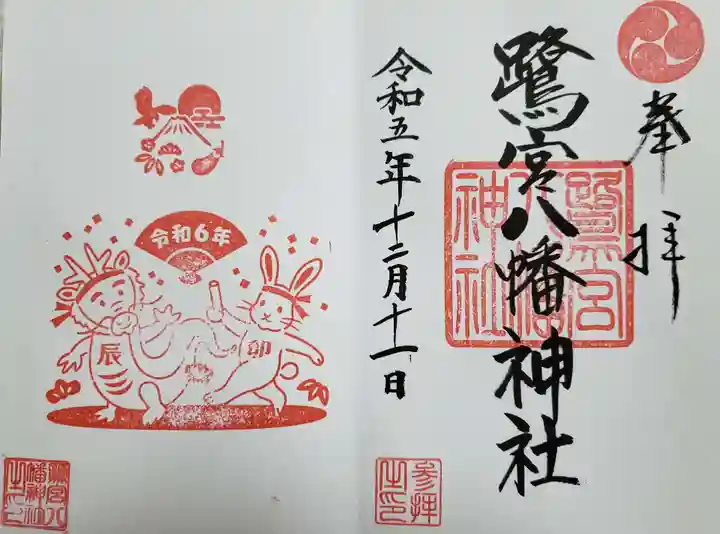 奉拝
鷺宮八幡神社
鷺宮八幡神社
令和五年十二月十一日
参拝之印
令和6年
辰
卯
鷺宮八幡神社之印